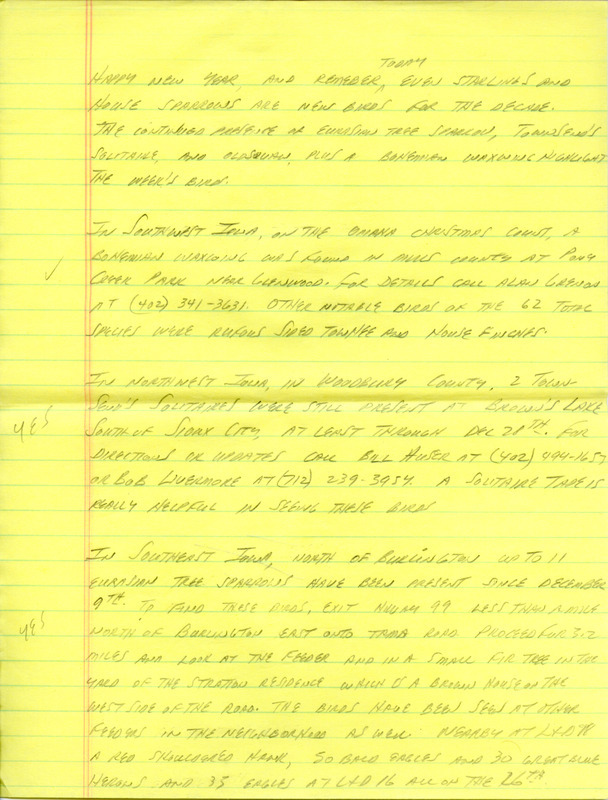 TODAY
HAPPY NEW YEAR, AND REMEBER, EVEN STARLINGS AND
HOUSE SPARROWS ARE NEW BIRDS FOR THE DECADE.
THE CONTINUED PRESENCE OF EURASIAN TREE SPARROW, TOWNSEND'S
SOLITAIRE, AND OLDSQUAW, PLUS A BOHEMIAN WAXWING HIGHLIGHT
THE WEEK'S BIRDS.
IN SOUTHWEST IOWA, ON THE OMAHA CHRISTMAS COUNT, A
BOHEMIAN WAXWING WAS FOUND IN MILLS COUNTY AT PONY
✓ CREEK PARK NEAR GLENWOOD. FOR DETAILS CALL ALAN GRENON
AT (402) 341-3631. OTHER NOTABLE BIRDS OF THE 62 TOTAL
SPECIES WERE RUFOUS SIDED TOWHEE AND HOUSE FINCHES.
IN NORTHWEST IOWA, IN WOODBURY COUNTY, 2 TOWN-
SEND'S SOLITAIRES WERE STILL PRESENT AT BROWN'S LAKE
YES SOUTH OF SIOUX CITY, AT LEAST THROUGH DEC 28TH. FOR
DIRECTIONS OR UPDATES CALL BILL HUSER AT (402) 494-1657
OR BOB LIVERMORE AT (712) 239-3954. A SOLITAIRE TAPE IS
REALLY HELPFUL IN SEEING THESE BIRDS
IN SOUTHEAST IOWA, NORTH OF BURLINGTON UP TO 11
EURASIAN TREE SPARROWS HAVE BEEN PRESENT SINCE DECEMBER
9TH. TO FIND THESE BIRDS, EXIT HIWAY 99 LESS THAN A MILE
YES NORTH OF BURLINGTON EAST ONTO TAMA ROAD. PROCEED FOR 3.2
MILES AND LOOK AT THE FEEDER AND IN A SMALL FIR TREE IN THE
YARD OF THE STRATTON RESIDENCE WHICH IS A BROWN HOUSE ON THE
WEST SIDE OF THE ROAD. THE BIRDS HAVE BEEN SEEN AT OTHER
FEEDERS IN THE NEIGHBORHOOD AS WELL. NEARBY AT L+D
A RED SHOULDERED HAWK, 50 BALD EAGLES AND 30 GREAT BLUE
HERONS AND 35 EAGLES AT L+D 16 ALL ON THE 26TH.